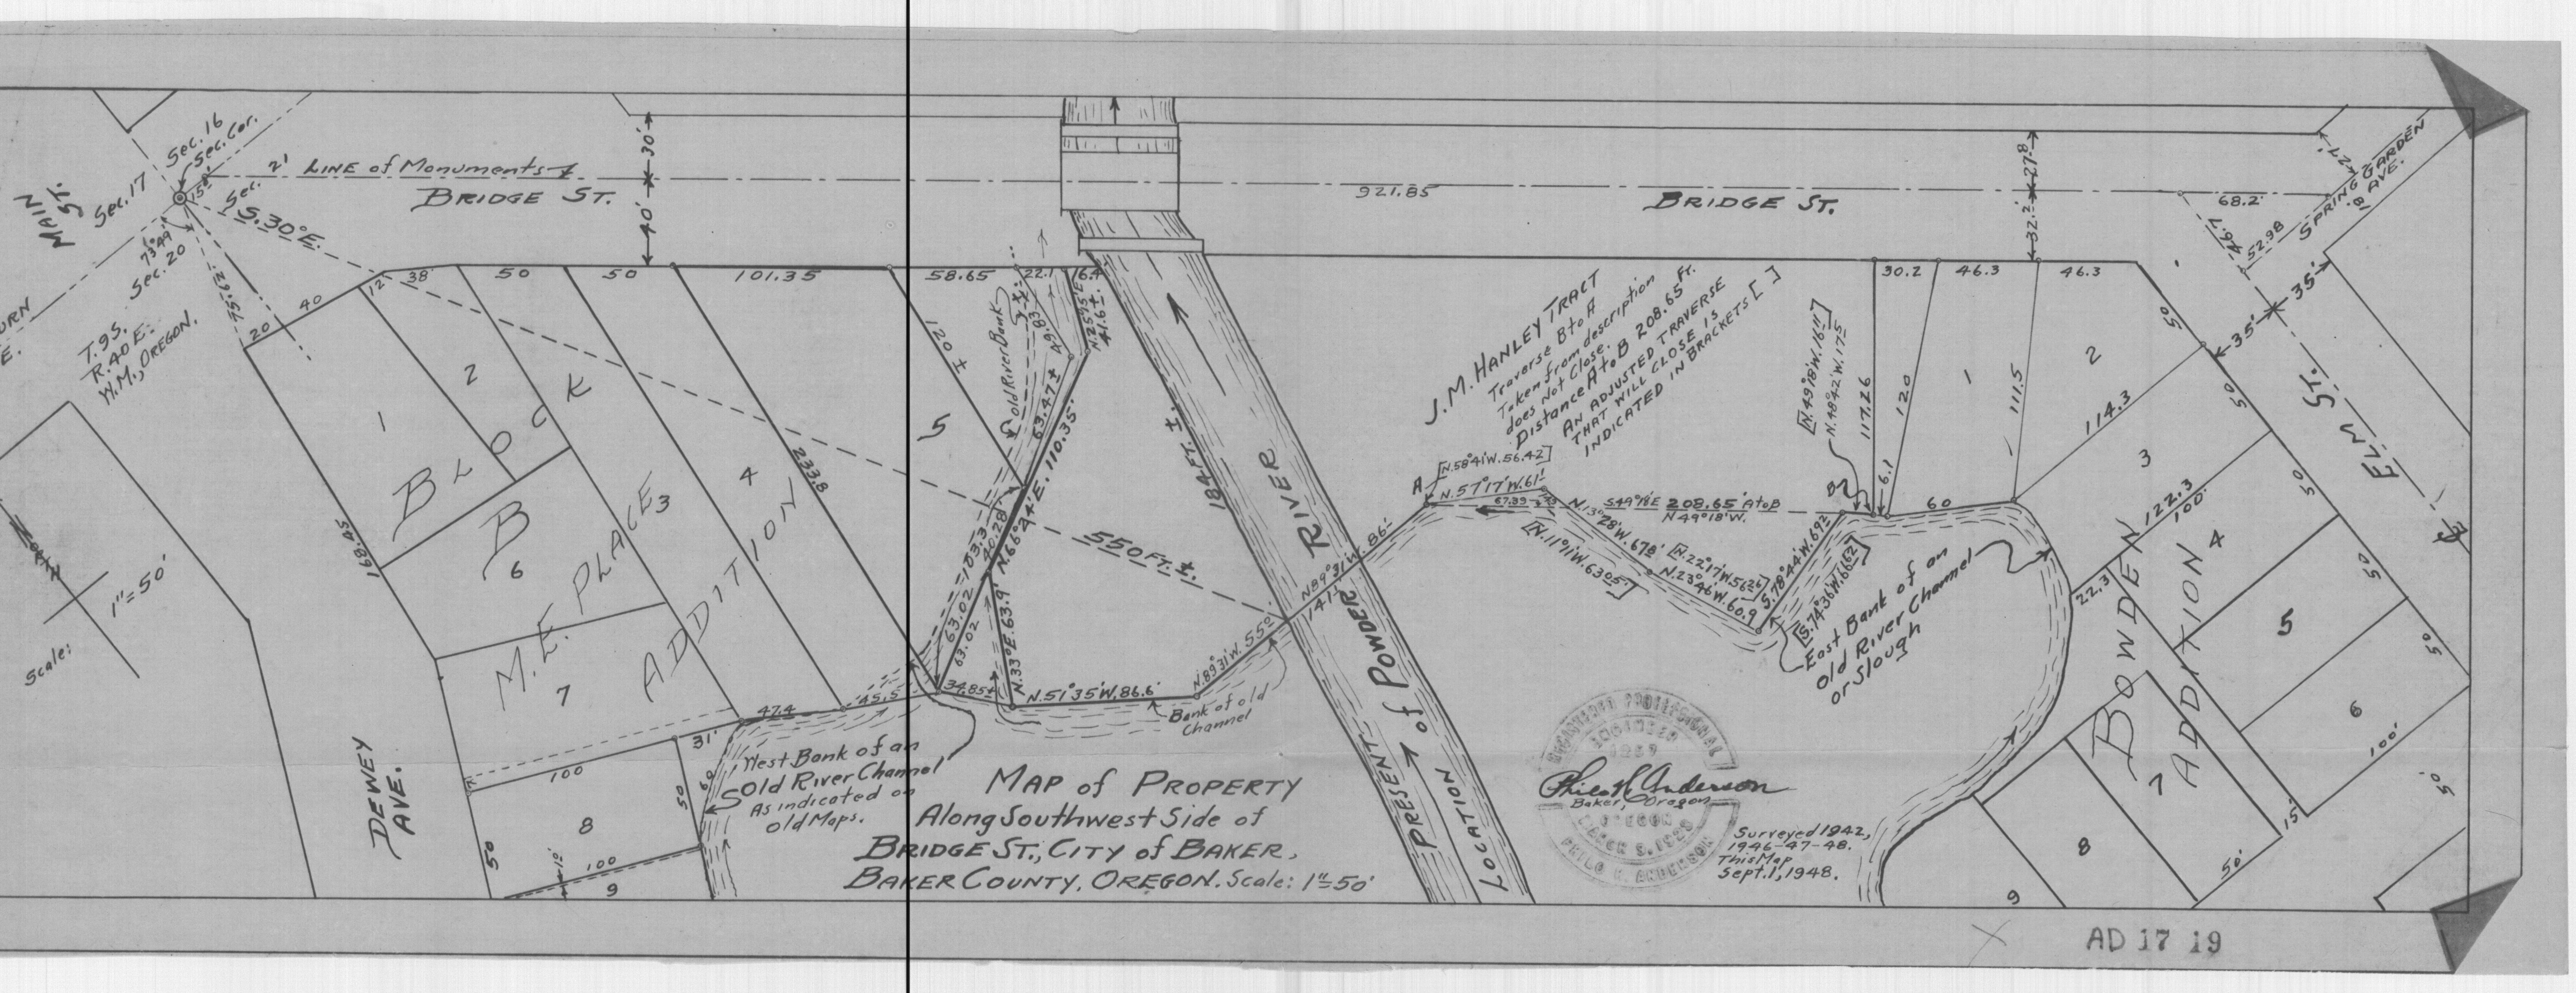 Sec. 16
Sec. Cor.
Sec. 17
MAIN
ST.
Sec. 21
150'
LINE of Monuments
BRIDGE ST.
30'
40'
S.30°E.
73°49'
Sec. 20
75.62'
T.9S.
R.40E.
W.M., OREGON.
URN
E.
NORTH
1"=50'
Scale:
20
40
12'
38'
50
50
101.35
58.65
22.1
6.4
921.85
BRIDGE ST.
27.8
32.2
27'
SPRING GARDEN
AVE.
18'
68.2'
46.7
52.98
30.2
46.3
46.3
50
35'
35'
ELM ST.
1
2
BLOCK
B
3
4
5
6
7
8
9
M.E. PLACE
ADDITION
168.45
233.8
120 ±
Old River Bank
49.83 ±
N.25°15'E.
41.6 ±
63.47 ±
N.66°24'E. 110.35'
40.28'
63.02
63.02
103.3
N.33°E. 63.9'
34.85 ±
N.51°35'W. 86.6'
N.89°31'W. 55'
N.89°31'W.
141'
86'
550 FT. ±
184 FT. ±
Bank of old
Channel
47.4
45.5
31'
100
50
60
50
100
10'
DEWEY
AVE.
West Bank of an
Old River Channel
As indicated on
old Maps.
MAP of PROPERTY
Along Southwest Side of
BRIDGE ST., CITY of BAKER,
BAKER COUNTY, OREGON. Scale: 1"=50'
PRESENT
LOCATION
of POWDER
RIVER
J.M. HANLEY TRACT
Traverse B to A
Taken from description
does Not Close.
Distance A to B 208.65 Ft.
AN ADJUSTED TRAVERSE
THAT WILL CLOSE IS
INDICATED IN BRACKETS [ ]
A
[N.58°41'W. 56.42]
N.57°17'W. 61'
S49°18'E 208.65' A to B
N 49°18'W.
N.13°28'W. 67.8'
[N.11°11'W. 63.05']
[N.22°17'W. 56.26]
N.23°46'W. 60.9
S.78°44'W. 69.2
[S.74°36'W. 66.2]
B
[N.49°18'W. 16.11]
N.48°42'W. 17.5
117.26
6.1
120
111.5
60
1
2
114.3
3
122.3
100'
22.3
4
5
6
7
8
9
50
50
50
50
100'
50'
15'
50'
BOWDEN
ADDITION
East Bank of an
old River Channel
or Slough
REGISTERED PROFESSIONAL
ENGINEER
OREGON
PHILO M. ANDERSON
Baker, Oregon
Surveyed 1942,
1946-47-48.
This Map
Sept. 1, 1948.
AD 17 19